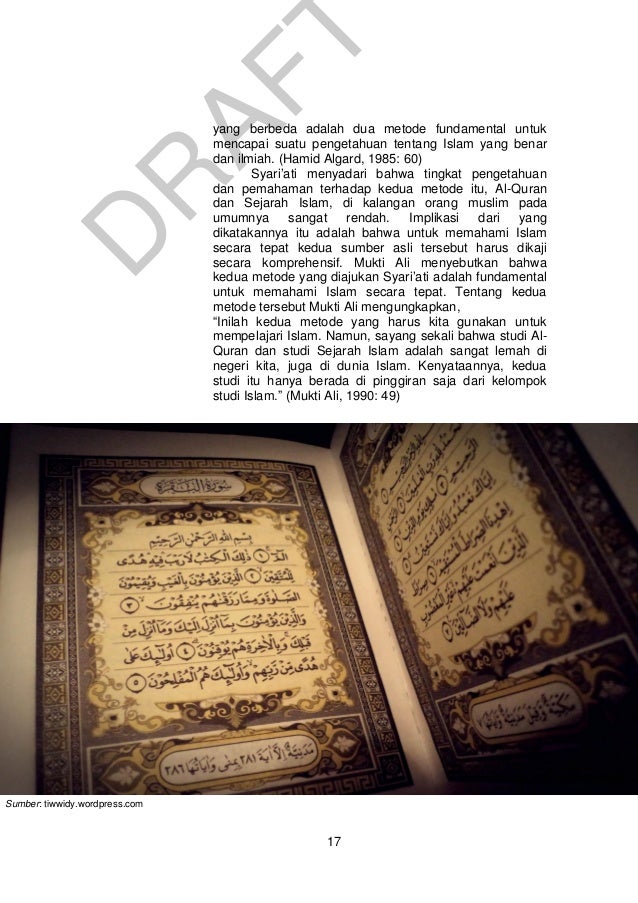 DRAFT
yang berbeda adalah dua metode fundamental untuk
mencapai suatu pengetahuan tentang Islam yang benar
dan ilmiah. (Hamid Algard, 1985: 60)
Syari’ati menyadari bahwa tingkat pengetahuan
dan pemahaman terhadap kedua metode itu, Al-Quran
dan Sejarah Islam, di kalangan orang muslim pada
umumnya sangat rendah. Implikasi dari yang
dikatakannya itu adalah bahwa untuk memahami Islam
secara tepat kedua sumber asli tersebut harus dikaji
secara komprehensif. Mukti Ali menyebutkan bahwa
kedua metode yang diajukan Syari’ati adalah fundamental
untuk memahami Islam secara tepat. Tentang kedua
metode tersebut Mukti Ali mengungkapkan,
“Inilah kedua metode yang harus kita gunakan untuk
mempelajari Islam. Namun, sayang sekali bahwa studi Al-
Quran dan studi Sejarah Islam adalah sangat lemah di
negeri kita, juga di dunia Islam. Kenyataannya, kedua
studi itu hanya berada di pinggiran saja dari kelompok
studi Islam.” (Mukti Ali, 1990: 49)
إِيَّاكَ نَعْبُدُ وَإِيَّاكَ نَسْتَعِينُ
اهْدِنَا الصِّرَاطَ الْمُسْتَقِيمَ
الَّذِينَ أَنْعَمْتَ عَلَيْهِمْ غَيْرِ الْمَغْضُوبِ
عَلَيْهِمْ وَلَا الضَّالِّينَ
مكية وقيل مدنية
سورة البقرة
بِسْمِ اللَّهِ الرَّحْمَٰنِ الرَّحِيمِ
الٓمٓ ١ ذَٰلِكَ الْكِتَٰبُ لَا رَيْبَ فِيهِ هُدًى
لِّلْمُتَّقِينَ ٢ الَّذِينَ يُؤْمِنُونَ بِالْغَيْبِ وَيُقِيمُونَ
الصَّلَوٰةَ وَمِمَّا رَزَقْنَٰهُمْ يُنفِقُونَ ٣
وَالَّذِينَ يُؤْمِنُونَ بِمَا أُنزِلَ إِلَيْكَ وَمَا أُنزِلَ مِن
قَبْلِكَ وَبِالْآخِرَةِ هُمْ يُوقِنُونَ ٤ أُولَٰئِكَ عَلَىٰ
هُدًى مِّن رَّبِّهِمْ وَأُولَٰئِكَ هُمُ الْمُفْلِحُونَ ٥
مدنية إلا آية ٢٨١ بمنى وآياتها ٢٨٦
Sumber: tiwwidy.wordpress.com
17